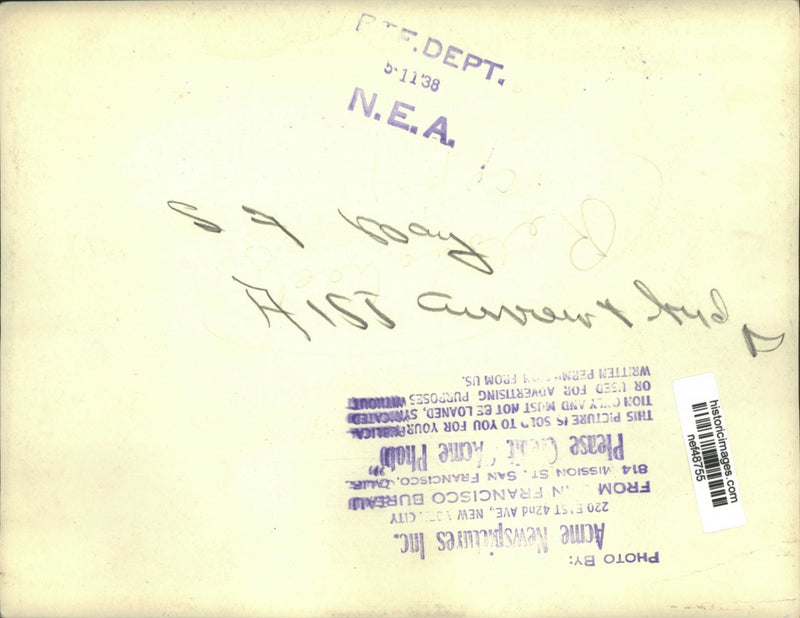 REF. DEPT.
5-11 38
N.E.A.
S F Bay
PHOTO BY:
Acme Newspictures Inc.
220 EAST 42nd AVE, NEW YORK CITY
FROM SAN FRANCISCO BUREAU
814 MISSION ST. SAN FRANCISCO, CALIF.
Please Credit "Acme Photo"
THIS PICTURE IS SOLD TO YOU FOR YOUR PUBLICA-
TION ONLY AND MUST NOT BE LOANED, SYNDICATED
OR USED FOR ADVERTISING PURPOSES WITHOUT
WRITTEN PERMISSION FROM US.
historicimages.com
nef48755